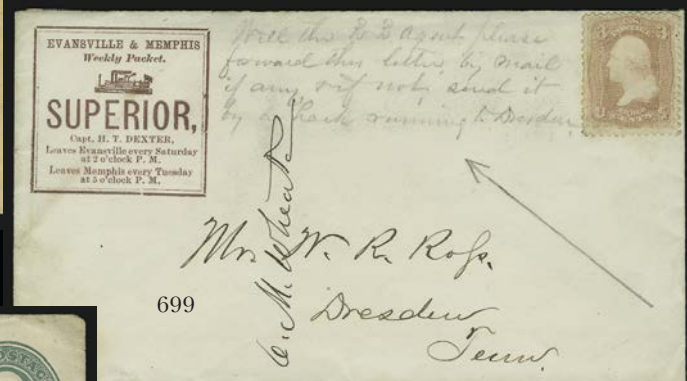 EVANSVILLE & MEMPHIS
Weekly Packet.
SUPERIOR,
Capt. H. T. DEXTER,
Leaves Evansville every Saturday
at 2 o'clock P. M.
Leaves Memphis every Tuesday
at 5 o'clock P. M.
Will the R R agent please
forward this letter by mail
if any & if not send it
by a hack running to Dresden
3 3
Mrs W. R. Ross.
Dresden
Tenn.
699
POSTAGE